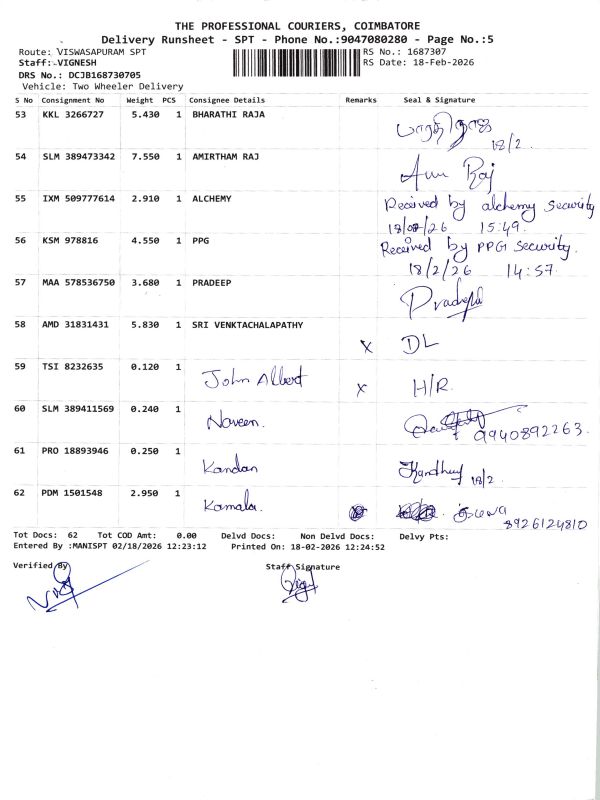 THE PROFESSIONAL COURIERS, COIMBATORE
Delivery Runsheet - SPT - Phone No.:9047080280 - Page No.:5
Route: VISWASAPURAM SPT RS No.: 1687307
Staff:VIGNESH RS Date: 18-Feb-2026
DRS No.: DCJB168730705
Vehicle: Two Wheeler Delivery
S No Consignment No Weight PCS Consignee Details Remarks Seal & Signature
53 KKL 3266727 5.430 1 BHARATHI RAJA
18/2.
54 SLM 389473342 7.550 1 AMIRTHAM RAJ Raj
55 IXM 509777614 2.910 1 ALCHEMY Received by alchemy security
15:49.
56 KSM 978816 4.550 1 PPG Received by PPG Security.
18/2/26 14:57.
57 MAA 578536750 3.680 1 PRADEEP
58 AMD 31831431 5.830 1 SRI VENKTACHALAPATHY x DL
59 TSI 8232635 0.120 1 John Albert x H/R.
60 SLM 389411569 0.240 1 Naveen. 9940892263.
61 PRO 18893946 0.250 1 Kandan 18/2.
62 PDM 1501548 2.950 1 Kamala.
8926124810
Tot Docs: 62 Tot COD Amt: 0.00 Delvd Docs: Non Delvd Docs: Delvy Pts:
Entered By :MANISPT 02/18/2026 12:23:12 Printed On: 18-02-2026 12:24:52
Verified By Staff Signature